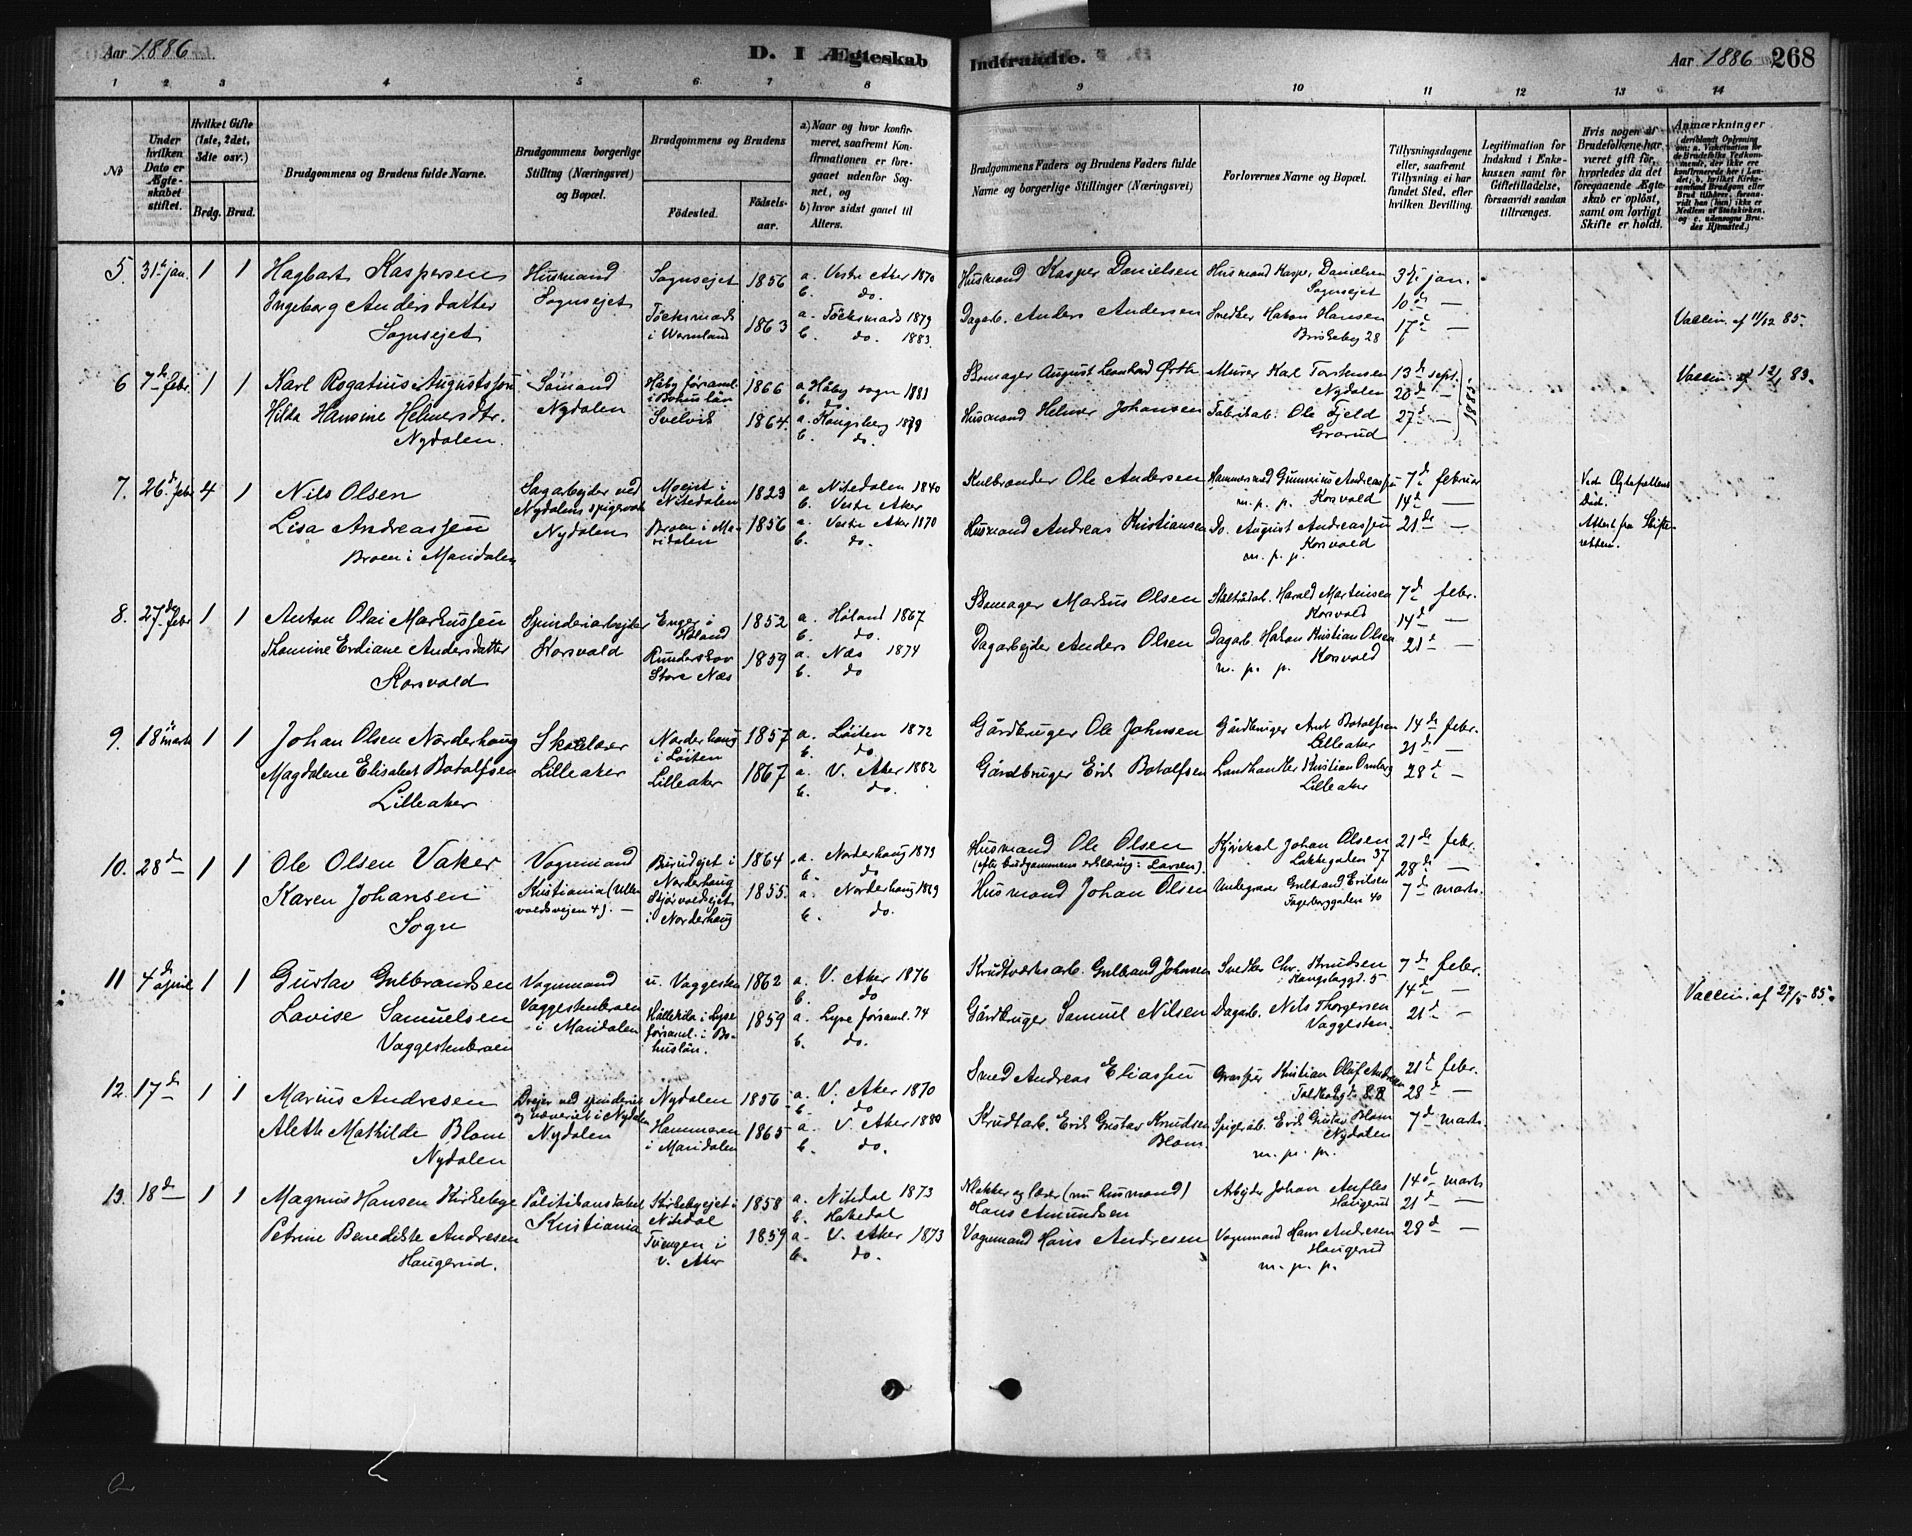 Aar 1886
D. I Ægteskab
Indtraadte.
Aar 1886 268
1 2 3 4 5 6 7 8 9 10 11 12 13 14
No
Under hvilken Dato er Ægteskabet stiftet.
Hvilket Gifte (1ste, 2det, 3die osv.)
Brdg. Brud.
Brudgommens og Brudens fulde Navne.
Brudgommens borgerlige Stilling (Næringsvei) og Bopæl.
Brudgommens og Brudens
Fødested.
Fødselsaar.
a) Naar og hvor konfirmeret, saafremt Konfirmationen er foregaaet udenfor Sognet, og
b) hvor sidst gaaet til Alters.
Brudgommens Faders og Brudens Faders fulde Navne og borgerlige Stillinger (Næringsvei)
Forlovernes Navne og Bopæl.
Tillysningsdagene eller, saafremt Tillysning ei har fundet Sted, efter hvilken Bevilling.
Legitimation for Indskud i Enkekassen samt for Giftetilladelse, forsaavidt saadan tiltrænges.
Hvis nogen af Brudefolkene har været gift før, hvorledes da det foregaaende Ægteskab er opløst, samt om lovligt Skifte er holdt.
Anmærkninger
5. 31te jan. 1 1 Hagbart Kaspersen Husmand Sognsejet 1856 a. Vestre Aker 1870 Husmand Kasper Danielsen Husmand Kasper Danielsen 3de jan.
Sognsejet b. do. Sognsejet 10de —
Ingeborg Andersdatter Töcksmark i Wermland 1863 a. Töcksmark 1879 Dagarb. Anders Andersen Snedker Hakon Hansen 17de — Vaccin. af 11/12 85.
Sognsejet b. do. 1883. Briskeby 28
6 7de febr. 1 1 Karl Rogatius Augustsson Sømand Håby førsaml. i Bohuslän 1866 a. Håby sogn 1881 Skomager August Leonhard Örth Murer Karl Torstensen 13de sept. Vaccin. af 12/1 83.
Nydalen b. do. Nydalen 20de — 1885.
Hilda Hansine Helmersdtr. Svelvik 1864. a. Kongsberg 1879 Husmand Helmer Johansen Fabrikab. Ole Fjeld 27de —
Nydalen. b. do. Grorud
7. 26de febr. 4 1 Nils Olsen Sagarbejder ved Nydalens spigerverk Moeist i Nitedalen 1823 a Nitedalen 1840 Kulbrænder Ole Andersen Hammersmed Gunerius Andreassen 7de februar Ved Ægtefællens Død.
b. Vestre Aker m. p. p. Korsvold 14de —
Lisa Andreassen Nydalen Broen i Maridalen 1856 a. Vestre Aker 1870 Husmand Andreas Kristiansen Do. August Andreassen 21de — Attest fra Skifteretten.
Broen i Maridalen b. do. m. p. p. Korsvold
8. 27de febr. 1 1 Anton Olai Markussen Spinderiarbejder Enger i Høland 1852 a. Høland 1867 Skomager Markus Olsen Harald Martinsen 7de febr.
b. do. Korsvold 14de —
Thomine Erdiane Andersdatter Korsvold Runderskov Store Næs 1859 a. Næs 1874 Dagarbejder Anders Olsen Dagarb. Hakon Kristian Olsen 21de —
Korsvold b. do m. p. p. Korsvold
9. 18de marts 1 1 Johan Olsen Norderhoug Skolelærer Norderhoug i Løiten 1857 a. Løiten 1872 Gårdbruger Ole Johnsen Gårdbruger Ant. Botolfsen 14de febr.
b. do Lilleaker 21de —
Magdalene Elisabet Botolfsen Lilleaker Lilleaker 1867 a. V. Aker 1882 Gårdbruger Erik Botolfsen Landhandler Kristian Ornberg 28de —
Lilleaker b. do. Lilleaker
10. 28de 1 1 Ole Olsen Vaker Vognmand Burudejet i Norderhoug 1864 a. Norderhoug 1879 Husmand Ole Olsen Johan Olsen 21de febr.
b. do (efter brudgommens erklæring: Larsen) Løkkegaden 37 28de —
Karen Johansen Kristiania (Ullevoldsvejen 4). i Norderhoug 1855. a. Norderhoug 1869 Husmand Johan Olsen Undergraver Gulbrand Eriksen 7de marts.
Sogn b. do. Fagerborggaden 40
11 4de april 1 1 Gustav Gulbrandsen Vognmand u. Vaggesten 1862 a. V. Aker 1876 Krudtværksarb. Gulbrand Johnsen Snedker Chr. Knudsen 7de febr.
b. do 14de —
Lovise Samuelsen Vaggestenbroen i Maridalen i Lyse førsaml. i Bohuslän. 1859 a. Lyse førsaml. 74 Gårdbruger Samuel Nilsen Dagarb. Nils Thorgersen 21de — Vaccin. af 27/5 85.
Vaggestenbroen b. do. Vaggesten.
12. 17de 1 1 Marius Andresen Drejer ved spinderiet og væveriet i Nydalen Nydalen 1856 a. V. Aker 1870 Smed Andreas Eliassen Kristian Olaf Andresen 21de febr.
b. do 28de —
Aleth Mathilde Blom Nydalen Hammeren i Maridalen 1865 a. V. Aker 1880 Krudtarb. Erik Gustav Knudsen Blom Spigerarb. Erik Gustav Blom 7de marts
Nydalen b. do. m. p. p. Nydalen
13. 18de 1 1 Magnus Hansen Kirkebye Politikonstabel Kirkebyejet i Nitedal 1858 a. Nitedal 1873 Klokker og lærer (nu husmand) Hans Amundsen Arbejder Johan Aufles 14de marts
Kristiania b. Hakedal Haugerud 21de —
Petrine Benedikte Andresen Tvengen i V. Aker 1859 a. V. Aker 1873 Vognmand Hans Andresen Vognmand Hans Andresen 28de —
Haugerud. b. do. Haugerud
m. p. p.